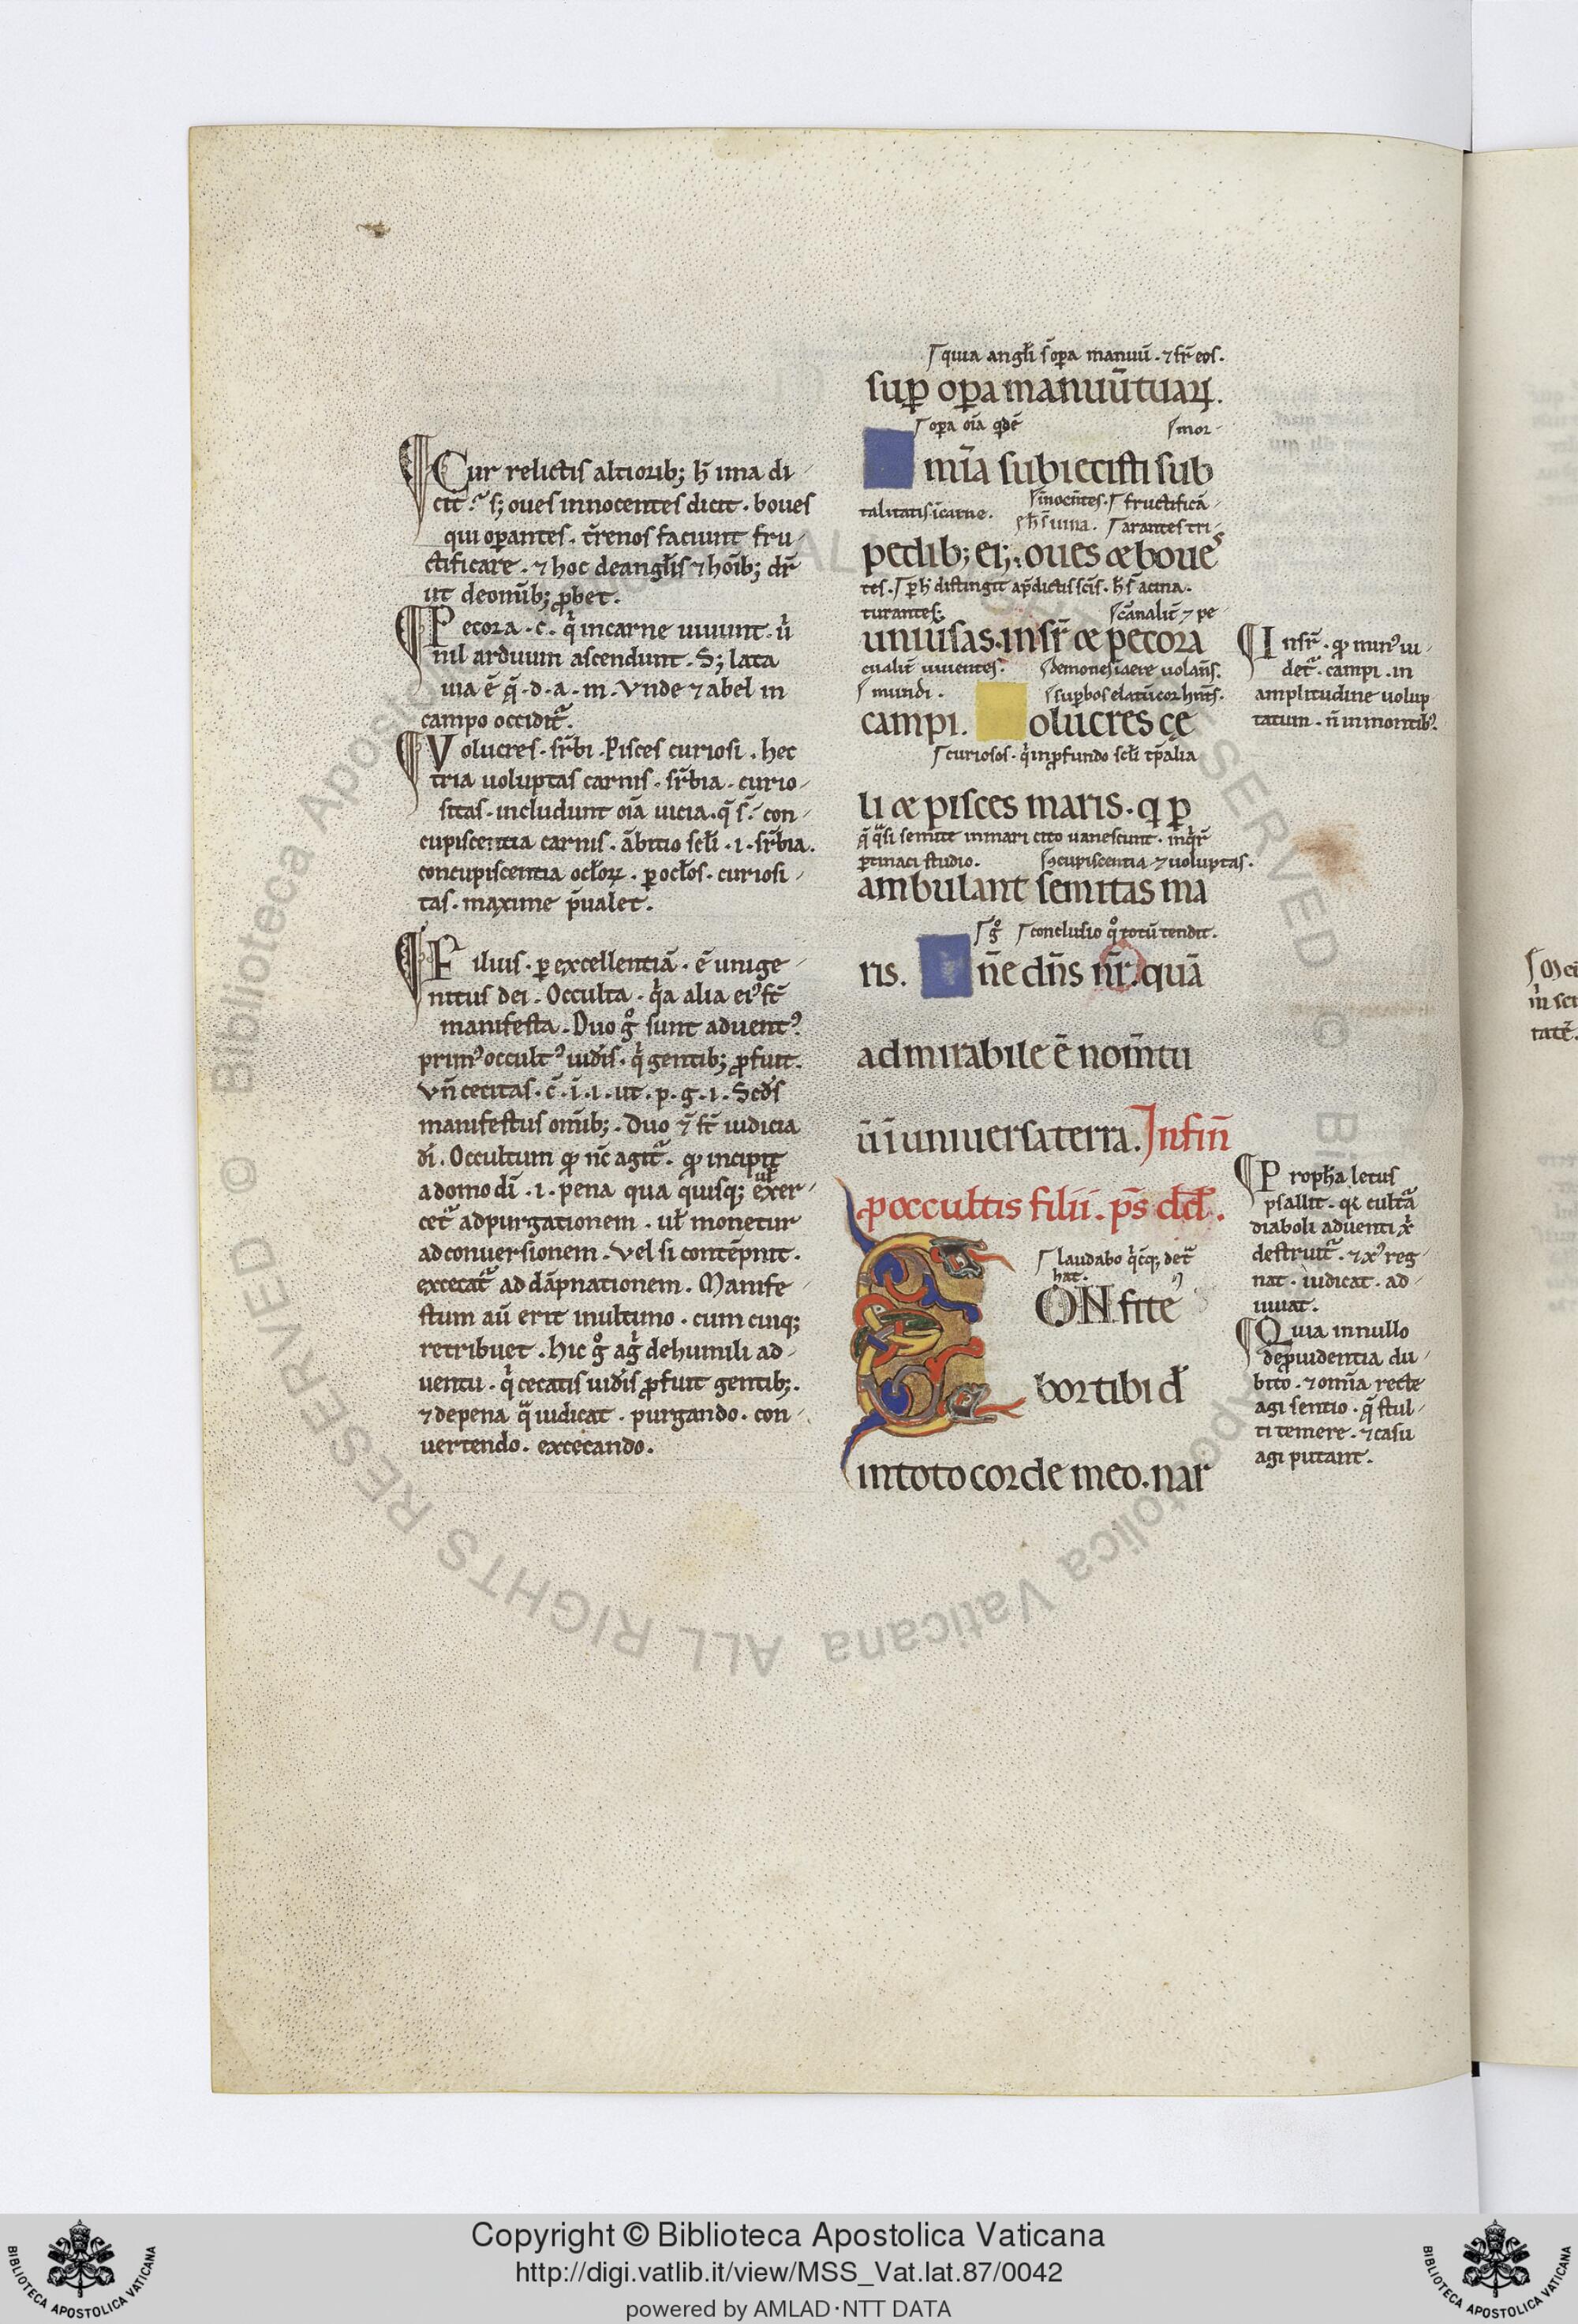 Cur relictis altiorib; h̄ ima di
cit. s; oues innocentes dicit. boues
qui oꝑantes. t̄renos faciunt fru
ctificare. ⁊ hoc de angl̄is ⁊ hoīb; dr̄
ut de om̄ib; ꝓbet.
Pecora. c̄. q̇ in carne uiuunt. u̇
nil arduum ascendunt. S; lata
uia ē q̄. d. a. m. Vnde ⁊ abel in
campo occidit᷑.
Volucres. sr̄bi. Pisces curiosi. hec
tria uoluptas carnis. sr̄bia. curio
sitas. includunt oīa uicia. q̄ s̄. con
cupiscentia carnis. ābitio scl̄i. i. sr̄bia.
concupiscentia ocl̄oꝝ. ꝑ ocl̄os. curiosi
tas. maxime p̄ualet.
Filius. ꝑ excellentiā. ē unige
nitus dei. Occulta. q̇a alia eiꝰ st̄
manifesta. Duo g̊ sunt aduentꝰ.
primꝰ occultꝰ iudīs. q̇ gentib; ꝓfuit.
vn̄ cecitas. c̄. ī. i. ut. p. g. i. Scd̄s
manifestus om̄ib;. Duo ⁊̄ st̄ iudicia
dī. Occultum qͦ nc̄ agit᷑. qͦ incipit
a domo dī. i. pena qua quisq; exer
cet᷑ ad purgationem. ul̄ monetur
ad conuersionem. Vel si contēpnit.
excecat᷑ ad dāpnationem. Manife
stum aū erit in ultimo. cum cuiq;
retribuet. hic g̊ aġ de humili ad
uentu. q̇ cecatis iudīs ꝓfuit gentib;.
⁊ de pena q̄ iudicat. purgando. con
uertendo. excecando.
quia angl̄i s̄ oꝑa manuū. ⁊ st̄ eos.
suꝑ oꝑa manuū tuaꝝ.
oꝑa oīa qͥdē mor
mīa subiecisti sub
talitatis ī carne. īnocētes. fructificā
h̄ s̄ uina. arantes tri
pedib; ei;. oues & boues
tes. ꝑ h̄ distingit a p̄dictis scīs. h̄ s̄ acina.
turantes; cānalit̄ ⁊ pe
uniu̇sas. insr̄ & pecora
cualit̄ uiuentes. demones ī aere uolan̄s.
mundi. suꝑbos elatū cor hn̄ts.
campi. olucres cę
curiosos. q̇ in ꝓfundo scl̄i tp̄alia
li & pisces maris. q ꝑ
q̄ q̈si semite in mari cito uanescunt. inq̇r̄
ꝑtinaci studio. ꝯcupiscentia ⁊ uoluptas.
ambulant semitas ma
g̊ conclusio q̊ totū tendit.
ris. n̄e dn̄s nr̄. quā
admirabile ē nom̄ tu
ū ī uniuersa terra. In fin̄
ꝓ occultis filii. ps̄ dd̄.
laudabo q̇cq; det᷑
hat.
CONfite
bor tibi dn̄e
in toto corde meo. nar
Insr̄. qͦ minꝰ ui
det᷑. campi. in
amplitudine uolup
tatum. n̄ in montibꝰ.
Proph̄a letus
psallit. qꝛ cult᷑a
diaboli aduenti xp̄i
destruit᷑. ⁊ xꝰ reg
nat. iudicat. ad
iuuat.
Quia in nullo
de ꝓuidentia du
bito. ⁊ om̄ia recte
agi sentio. q̄ stul
ti temere. ⁊ casu
agi putant.
© Biblioteca Apostolica Vaticana ALL RIGHTS RESERVED
Copyright © Biblioteca Apostolica Vaticana
http://digi.vatlib.it/view/MSS_Vat.lat.87/0042
powered by AMLAD·NTT DATA
BIBLIOTECA APOSTOLICA VATICANA
BIBLIOTECA APOSTOLICA VATICANA